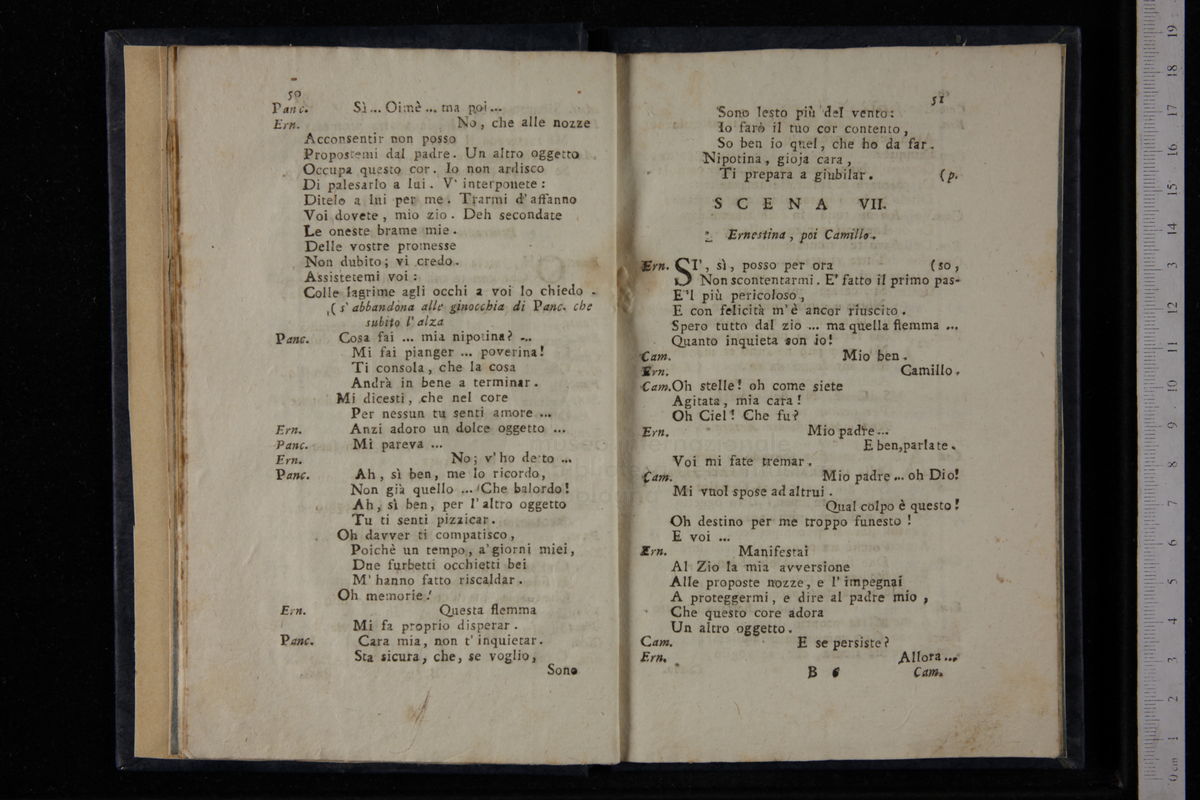 50
Panc. Sì ... Oimè ... ma poi ...
Ern. No, che alle nozze
Acconsentir non posso
Propostemi dal padre. Un altro oggetto
Occupa questo cor. Io non ardisco
Di palesarlo a lui. V' interponete:
Ditelo a lui per me. Trarmi d' affanno
Voi dovete, mio zio. Deh secondate
Le oneste brame mie.
Delle vostre promesse
Non dubito; vi credo.
Assistetemi voi:
Colle lagrime agli occhi a voi lo chiedo.
( s' abbandona alle ginocchia di Panc. che
subito l' alza
Panc. Cosa fai ... mia nipotina? ...
Mi fai pianger ... poverina!
Ti consola, che la cosa
Andrà in bene a terminar.
Mi dicesti, che nel core
Per nessun tu senti amore ...
Ern. Anzi adoro un dolce oggetto ...
Panc. Mi pareva ...
Ern. No; v' ho detto ...
Panc. Ah, sì ben, me lo ricordo,
Non già quello ... Che balordo!
Ah, sì ben, per l' altro oggetto
Tu ti senti pizzicar.
Oh davver ti compatisco,
Poichè un tempo, a' giorni miei,
Due furbetti occhietti bei
M' hanno fatto riscaldar.
Oh memorie!
Ern. Questa flemma
Mi fa proprio disperar.
Panc. Cara mia, non t' inquietar.
Sta sicura, che, se voglio,
Sono
51
Sono lesto più del vento:
Io farò il tuo cor contento,
So ben io quel, che ho da far.
Nipotina, gioja cara,
Ti prepara a giubilar. (p.
SCENA VII.
Ernestina, poi Camillo.
Ern. SI', sì, posso per ora (so,
Non scontentarmi. E' fatto il primo pas-
E'l più pericoloso,
E con felicità m' è ancor riuscito.
Spero tutto dal zio ... ma quella flemma ...
Quanto inquieta son io!
Cam. Mio ben.
Ern. Camillo.
Cam. Oh stelle! oh come siete
Agitata, mia cara!
Oh Ciel! Che fu?
Ern. Mio padre ...
E ben, parlate.
Voi mi fate tremar.
Cam. Mio padre ... oh Dio!
Mi vuol spose ad altrui.
Qual colpo è questo!
Oh destino per me troppo funesto!
E voi ...
Ern. Manifestai
Al Zio la mia avversione
Alle proposte nozze, e l' impegnai
A proteggermi, e dire al padre mio,
Che questo core adora
Un altro oggetto.
Cam. E se persiste?
Ern. Allora ...
B 6 Cam.